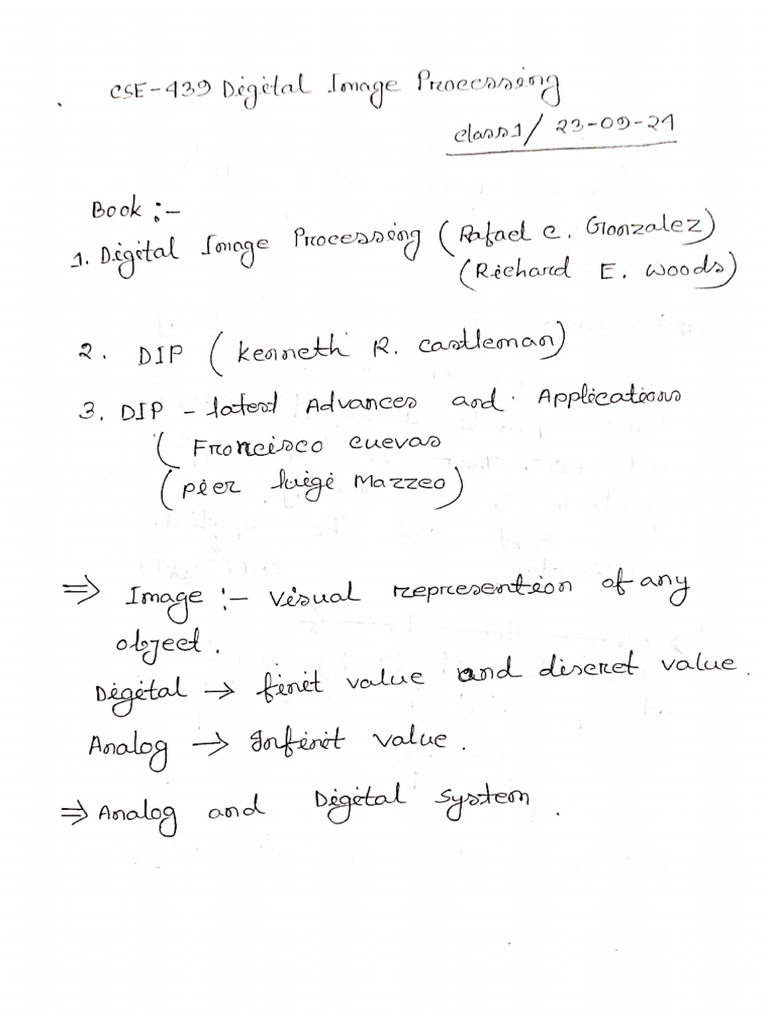 CSE-439 Digital Image Processing
class1/ 23-09-24
Book :-
1. Digital Image Processing (Rafael C. Gonzalez)
(Richard E. Woods)
2. DIP (Kenneth R. Castleman)
3. DIP - latest Advances and Applications
(Francisco Cuevas
(Pier Luigi Mazzeo)
⇒ Image :- Visual represention of any
object.
Digital → finit value and discret value.
Analog → Infinit value.
⇒ Analog and Digital system.